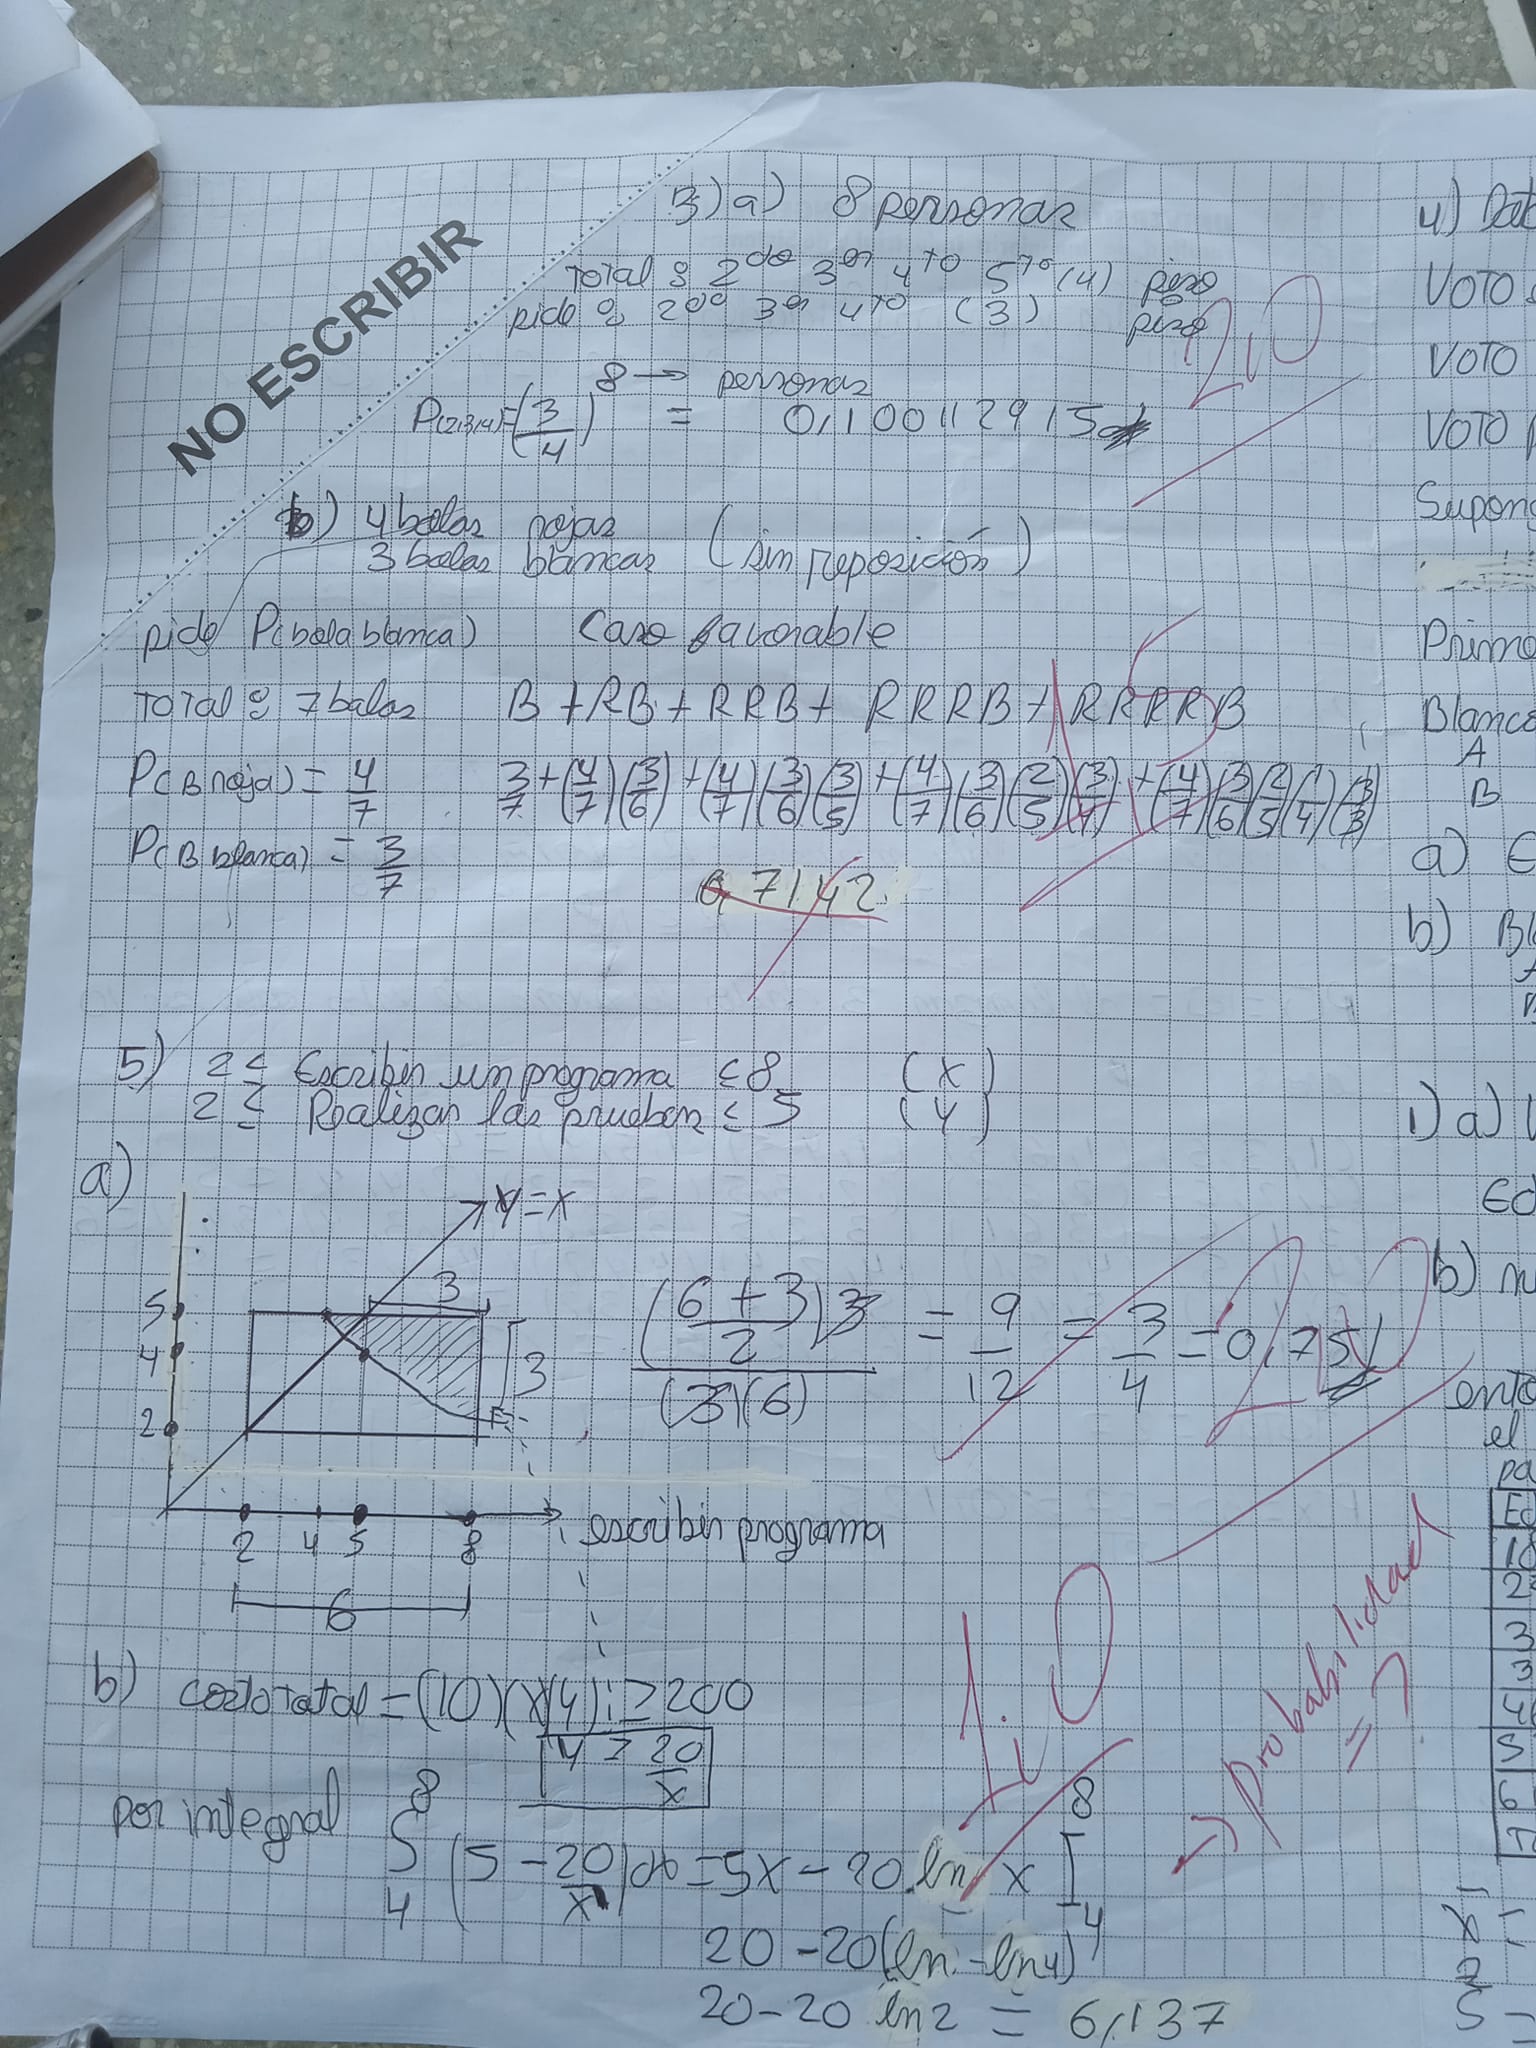 NO ESCRIBIR
3) a) 8 personas
Total : 2do 3er 4to 5to (4) piso
pide : 2do 3er 4to (3) piso
P(2,3,4) = (3/4)^8 → personas = 0,1001129150
2,0
b) 4 bolas rojas
3 bolas blancas (sin reposición)
pide P(bola blanca) Caso favorable
Total : 7 bolas B + RB + RRB + RRRB + RRRRB
P(B roja) = 4/7 3/7 + (4/7)(3/6) + (4/7)(3/6)(3/5) + (4/7)(3/6)(2/5)(3/4) + (4/7)(3/6)(2/5)(1/4)(3/3)
P(B blanca) = 3/7
7142
1,5
5) 2 ≤ Escribir un programa ≤ 8 (X)
2 ≤ Realizar las pruebas ≤ 5 (Y)
a)
Y=X
5
4
2
3
3
2 4 5 8
escribir programa
6
((6+3)/2)3 / (3)(6) = 9/12 = 3/4 = 0,75
2,0
b) costo total = (10)(x)(y) ≥ 200
y ≥ 20/x
por integral ∫ 8 4 (5 - 20/x) dx = 5x - 20.ln x ] 8 4
20 - 20(ln - ln4)
20 - 20 ln2 = 6,137
1.0
→ Probabilidad
= ?
4) Dat
VOTO
VOTO
VOTO
Supong
Prime
Blanco
A
B
a) E
b) Bl
1) a)
Ed
b)
ento
el
pa
Ed
18
2
3
3
4
5
6
7
x̄ =
2
S =